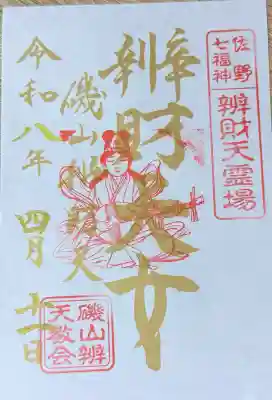 佐野
七福神
辨財天霊場
辨財天女
磯山
令和八年
四月十一日
磯山辨
天教会